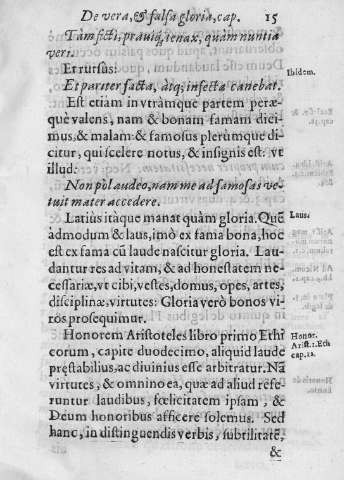 De vera, & falsa gloria, cap. 15
Tàm ficti, prauiq́; tenax, quàm nuntia
veri.
Et rursus:
Ibidem.
Et pariter facta, atq́; infecta canebat.
Est etiam in vtràmque partem peræ-
què valens, nam & bonam famam dici-
mus, & malam: & famosus plerùmque di-
citur, qui scelere notus, & insignis est: vt
illud:
Non pòl audeo, nam me ad famosas ve-
tuit mater accedere.
Latiùs itàque manat quàm gloria. Quē
Laus.
àdmodum & laus, imò ex fama bona, hoc
est ex fama cū laude nascitur gloria. Lau-
dantur res ad vitam, & ad honestatem ne-
cessariæ, vt cibi, vestes, domus, opes, artes,
disciplinæ, virtutes: Gloria verò bonos vi-
ros prosequimur.
Honorem Aristoteles libro primo Ethi
Honor.
Arist. 1. Eth
cap. 12.
corum, capite duodecimo, aliquid laude
pręstabilius, ac diuinius esse arbitratur. Nā
virtutes, & omnino ea, quæ ad aliud refe-
runtur laudibus, fœlicitatem ipsam, &
Deum honoribus afficere solemus. Sed
hanc, in distinguendis verbis, subtilitatē,
&